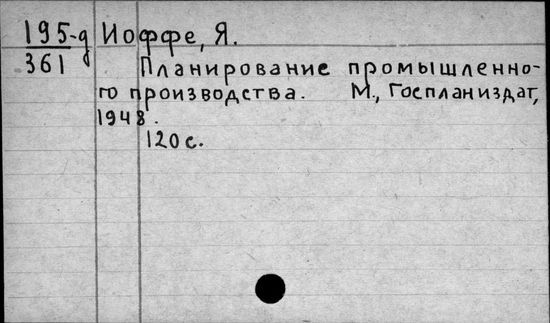 195-д Иоффе, Я.
361 Планирование промышленно-
го производства. М., Госпланиздат,
1948.
120 с.